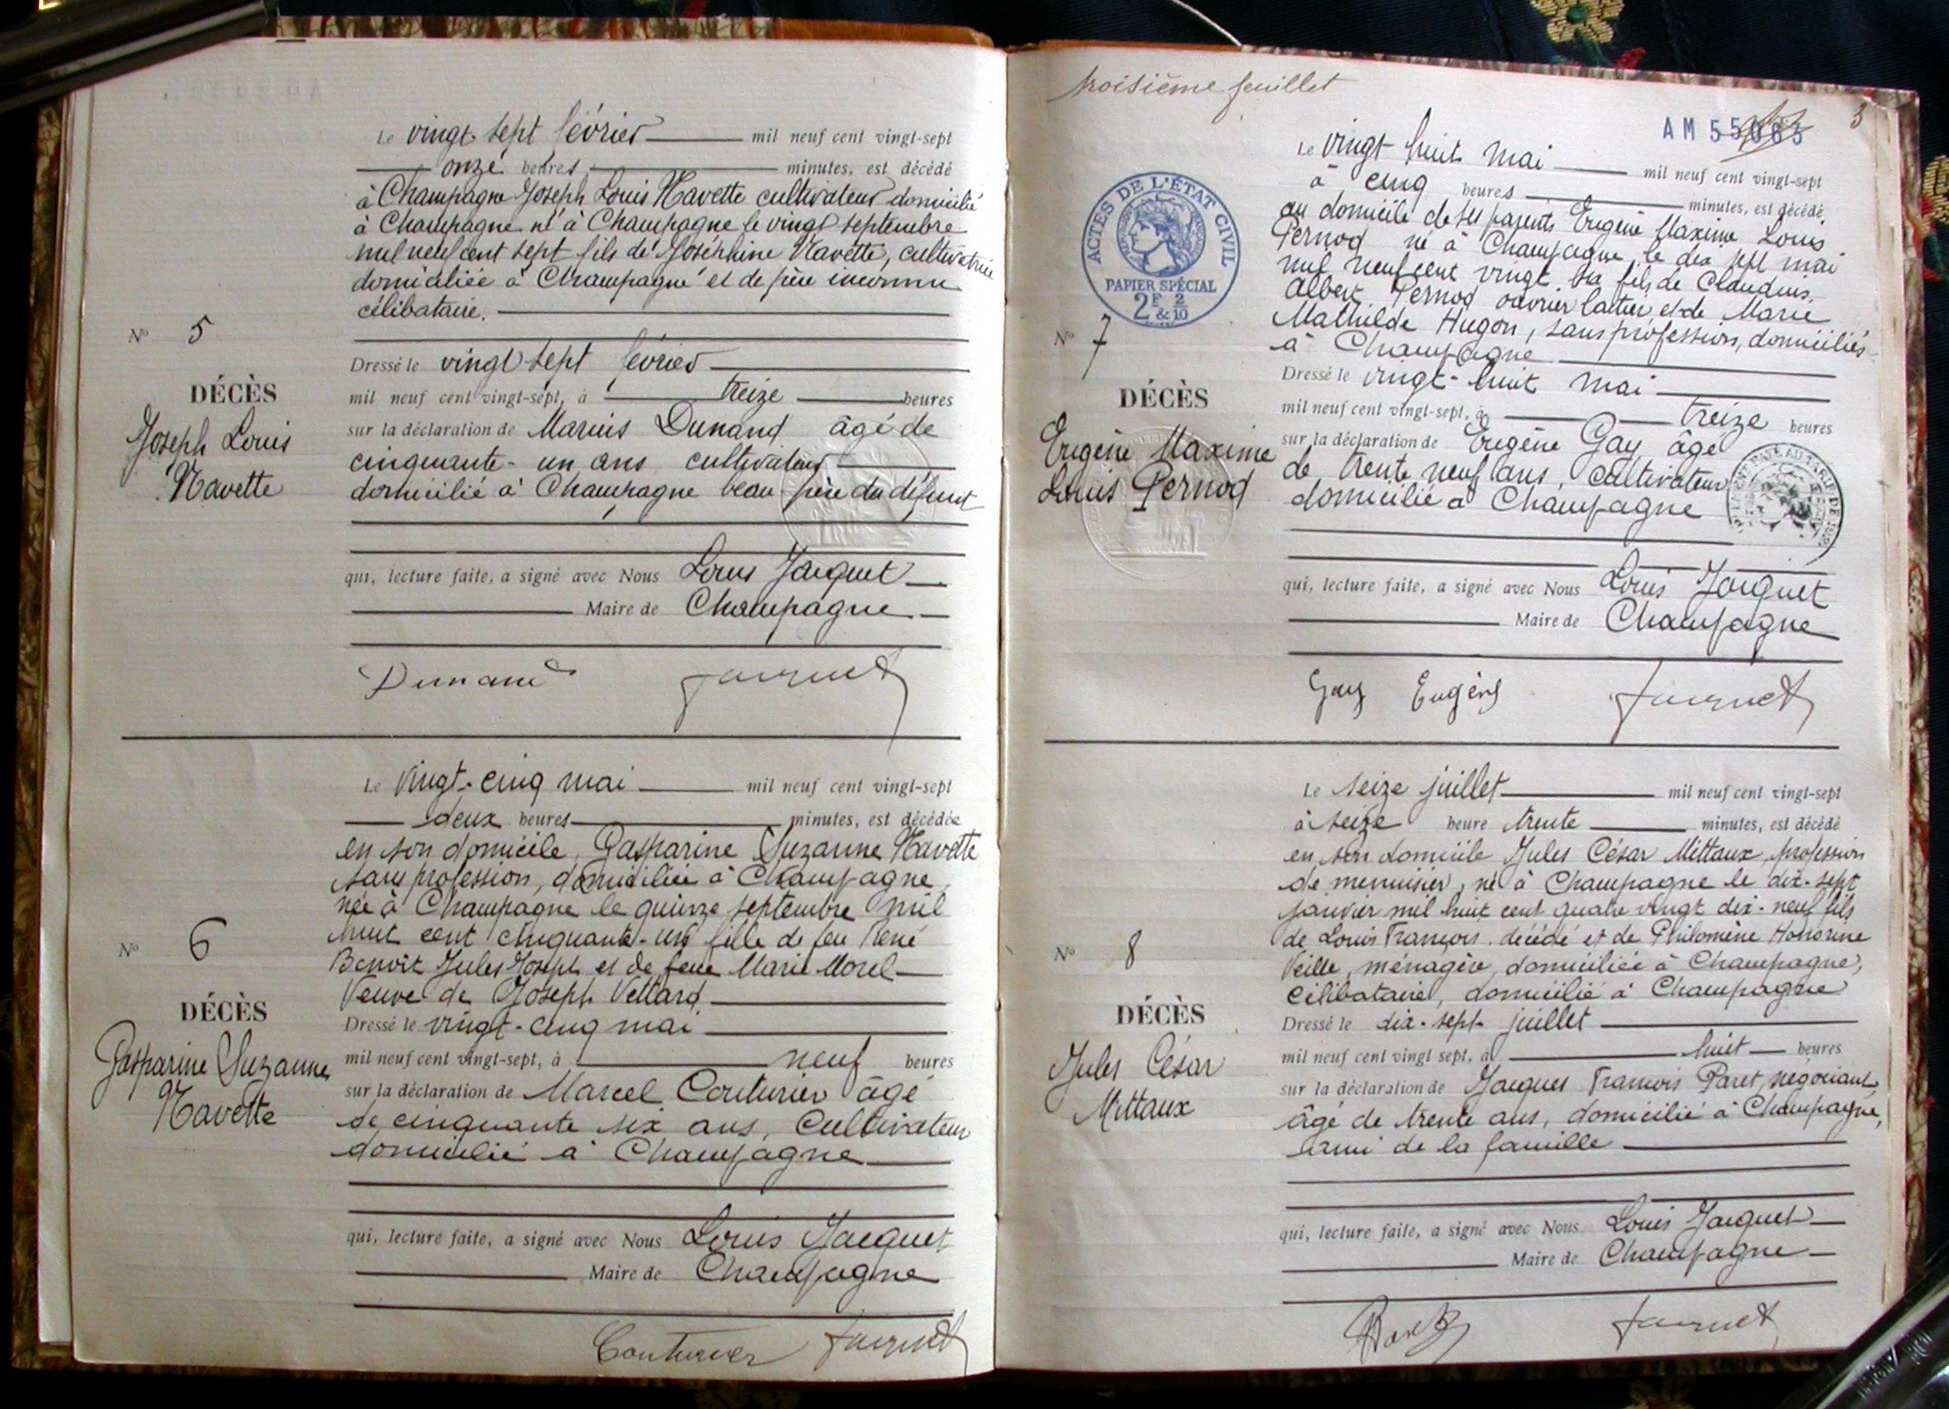 Le vingt sept février mil neuf cent vingt-sept
onze heures minutes, est décédé
à Champagne Joseph Louis Navette cultivateur domicilié
à Champagne né à Champagne le vingt septembre
mil neuf cent sept fils de Joséphine Navette, cultivatrice
domiciliée à Champagne et de père inconnu
célibataire.
No 5
DÉCÈS
Joseph Louis
Navette
Dressé le vingt sept février
mil neuf cent vingt-sept, à treize heures
sur la déclaration de Marius Dunand âgé de
cinquante-un ans cultivateur
domicilié à Champagne beau-père du défunt
qui, lecture faite, a signé avec Nous Louis Jacquet
Maire de Champagne
Dunand Jacquet
Le vingt-cinq mai mil neuf cent vingt-sept
deux heures minutes, est décédée
en son domicile, Gasparine Suzanne Navette
sans profession, domiciliée à Champagne,
née à Champagne le quinze septembre mil
huit cent cinquante-un fille de feu René
Benoit Jules Joseph et de feue Marie Morel
Veuve de Joseph Vettard
No 6
DÉCÈS
Gasparine Suzanne
Navette
Dressé le vingt-cinq mai
mil neuf cent vingt-sept, à neuf heures
sur la déclaration de Marcel Couturier âgé
de cinquante six ans, Cultivateur
domicilié à Champagne
qui, lecture faite, a signé avec Nous Louis Jacquet
Maire de Champagne
Couturier Jacquet
troisième feuillet
3
AM 55063
Le vingt huit mai mil neuf cent vingt-sept
à cinq heures minutes, est décédé
au domicile de ses parents Eugène Maxime Louis
Pernod né à Champagne, le dix sept mai
mil neuf cent vingt six fils de Claudius
Albert Pernod ouvrier laitier et de Marie
Mathilde Hugon, sans profession, domiciliés
à Champagne
ACTES DE L'ÉTAT CIVIL
PAPIER SPÉCIAL
2F 2
& 10
No 7
DÉCÈS
Eugène Maxime
Louis Pernod
Dressé le vingt-huit mai
mil neuf cent vingt-sept, à treize heures
sur la déclaration de Eugène Gay âgé
de trente neuf ans, cultivateur
domicilié à Champagne
qui, lecture faite, a signé avec Nous Louis Jacquet
Maire de Champagne
Gay Eugène Jacquet
Le seize juillet mil neuf cent vingt-sept
à seize heure trente minutes, est décédé
en son domicile Jules César Mittaux, profession
de menuisier, né à Champagne le dix-sept
janvier mil huit cent quatre vingt dix-neuf fils
de Louis François décédé et de Philomène Honorine
Veille, ménagère, domiciliée à Champagne,
célibataire, domicilié à Champagne
No 8
DÉCÈS
Jules César
Mittaux
Dressé le dix-sept juillet
mil neuf cent vingt sept, à huit heures
sur la déclaration de Jacques François Paret, négociant
âgé de trente ans, domicilié à Champagne,
ami de la famille
qui, lecture faite, a signé avec Nous Louis Jacquet
Maire de Champagne
Paret Jacquet